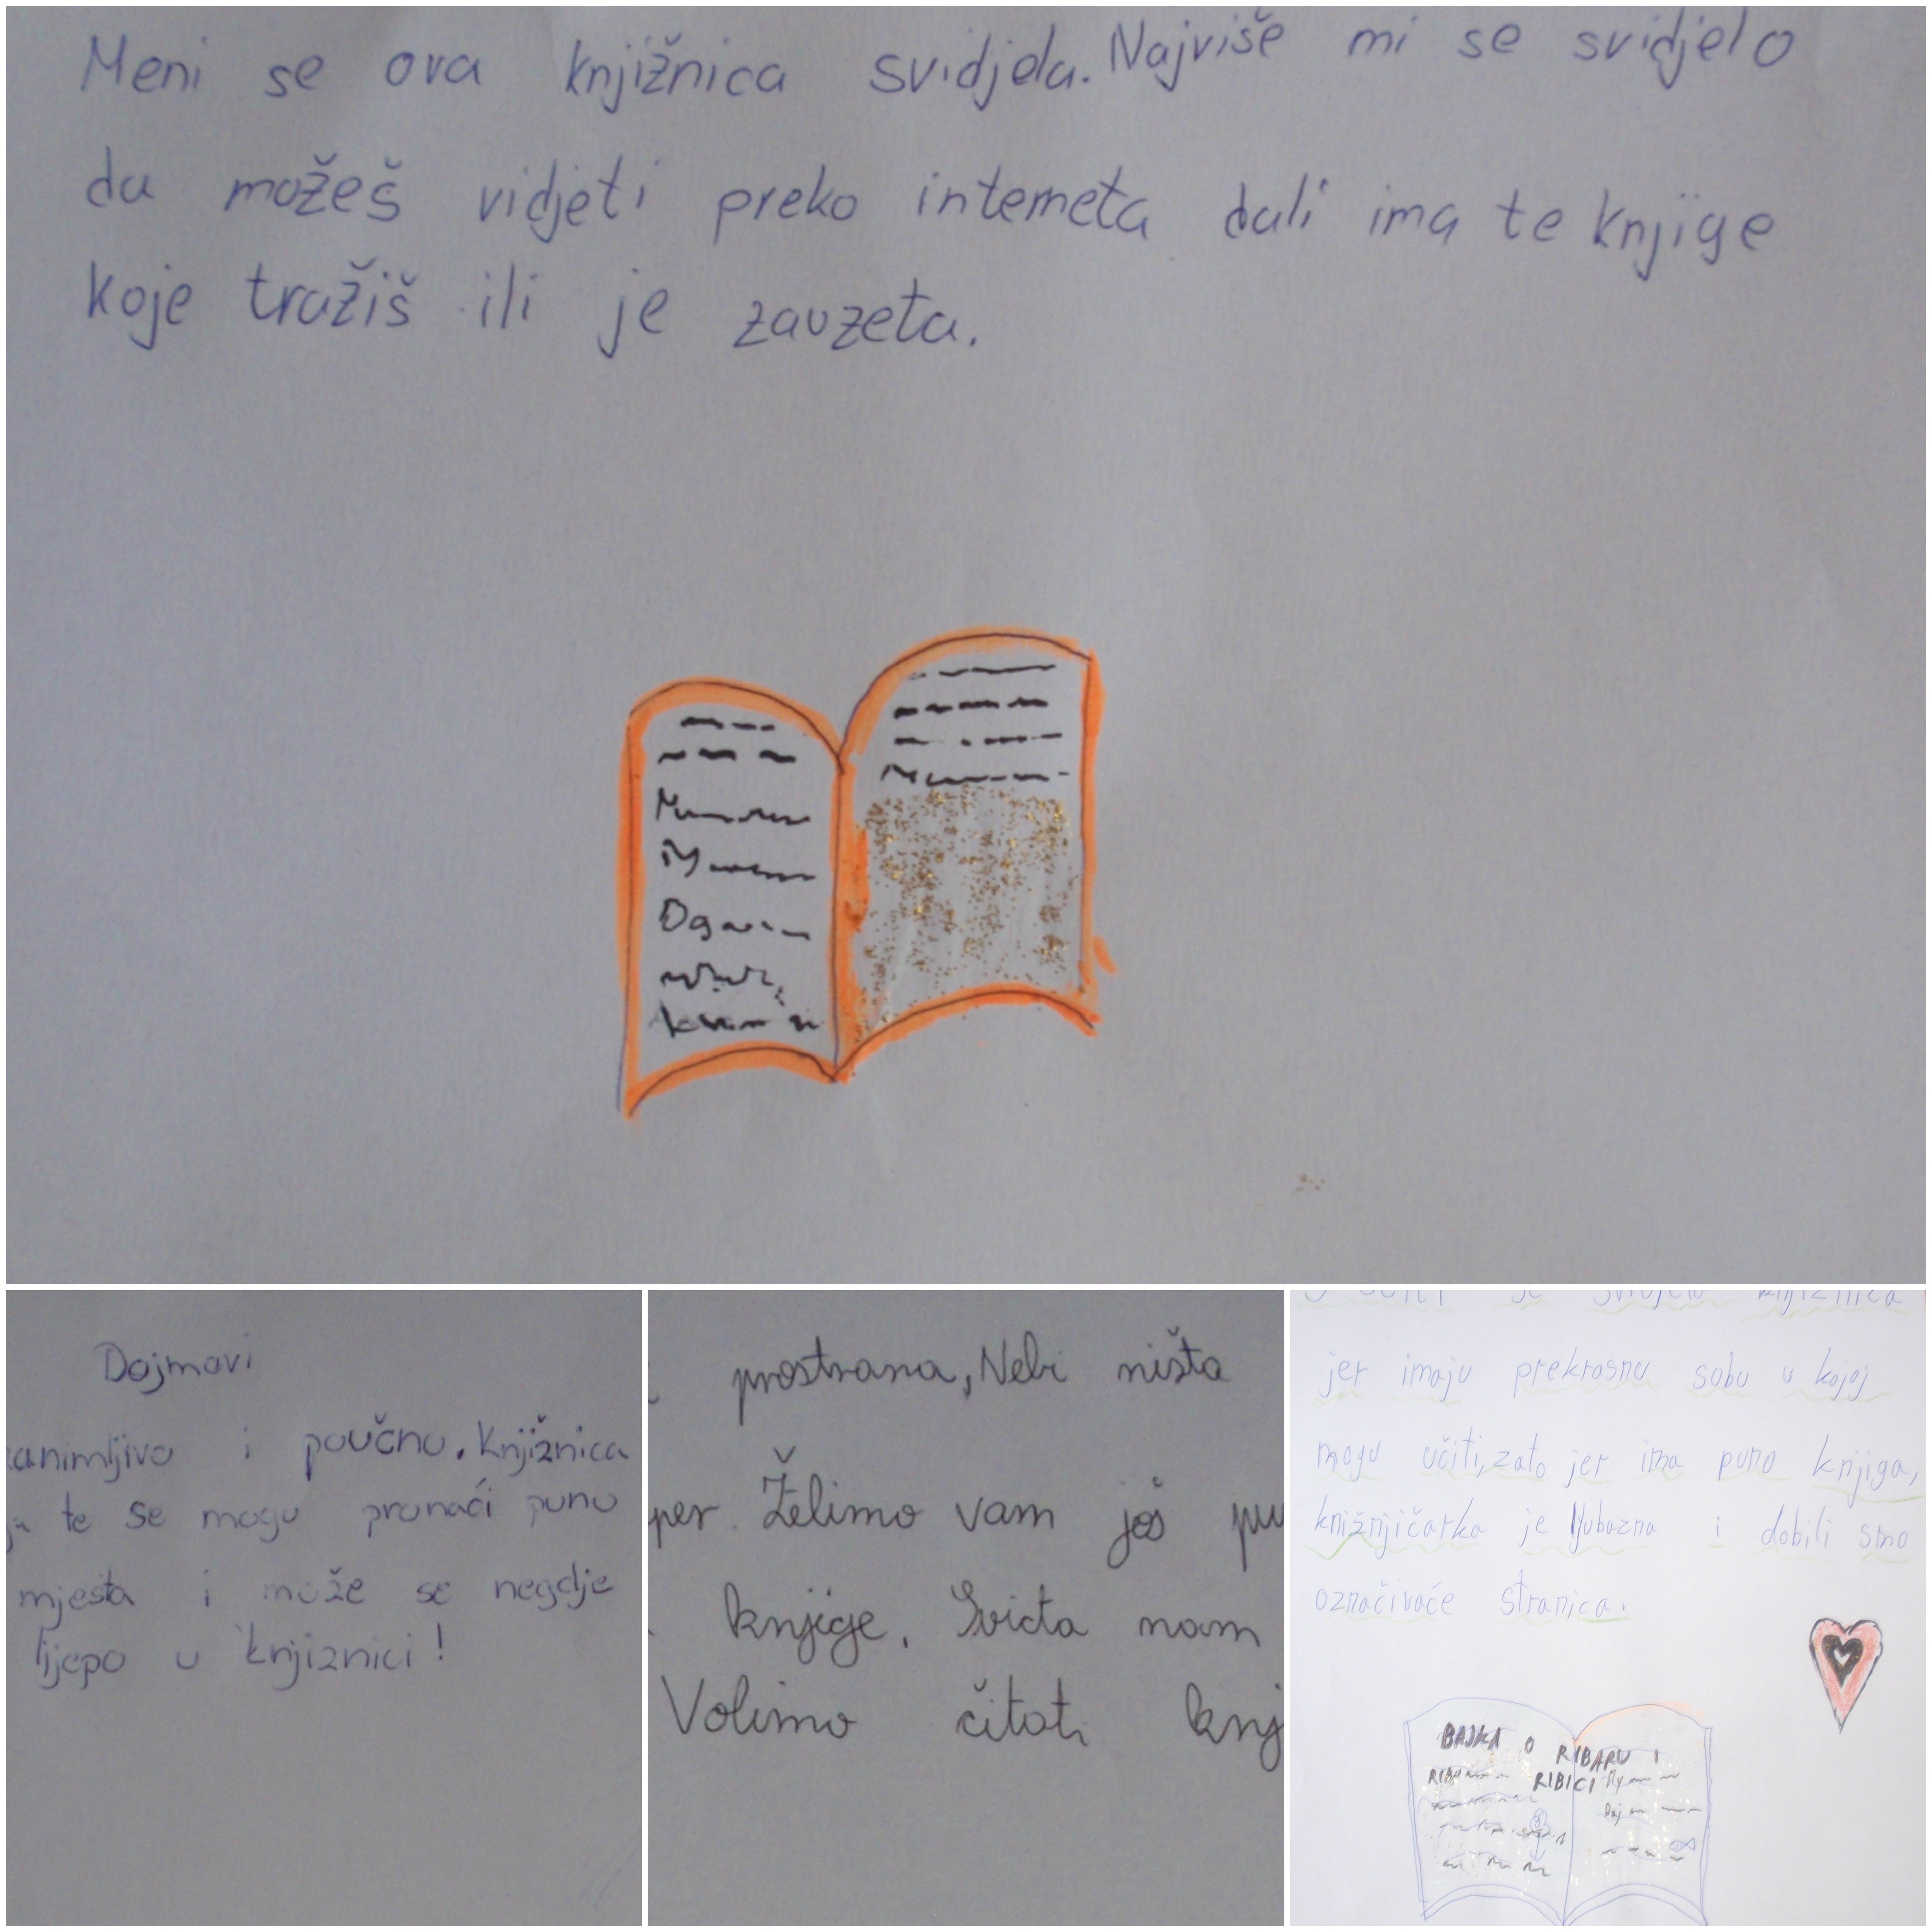 Meni se ova knjižnica svidjela. Najviše mi se svidjelo
da možeš vidjeti preko interneta dali ima te knjige
koje tražiš ili je zauzeta.
Dojmovi
animljivo i poučno. Knjižnica
te se mogu pronaći puno
mjesta i može se negdje
lijepo u knjiznici!
prostrana, Nebi ništa
per. Želimo vam još pu
knjige. Sviđa nam
Volimo čitati knj
se knjižnica
jer imaju prekrasnu sobu u kojoj
mogu učiti, zato jer ima puno knjiga,
knižnjičarka je ljubazna i dobili smo
označivaće stranica.
BAJKA O RIBARU I
RIBICI